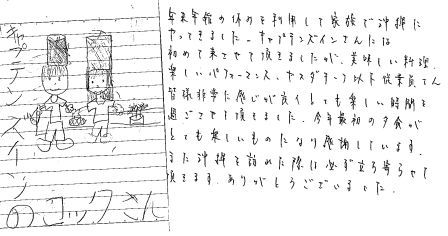 キャプテンズイン
のコックさん
年末年始の休みを利用して家族で沖縄に
やってきました。キャプテンズインさんには
初めて来させて頂きましたが、美味しい料理、
楽しいパフォーマンス、ヤスダチーフ以下従業員さん
皆様非常に感じが良くとても楽しい時間を
過ごさせて頂きました。今年最初の夕食が
とても楽しいものになり感謝しています。
また沖縄を訪れた際は必ず立ち寄らせて
頂きます。ありがとうございました。